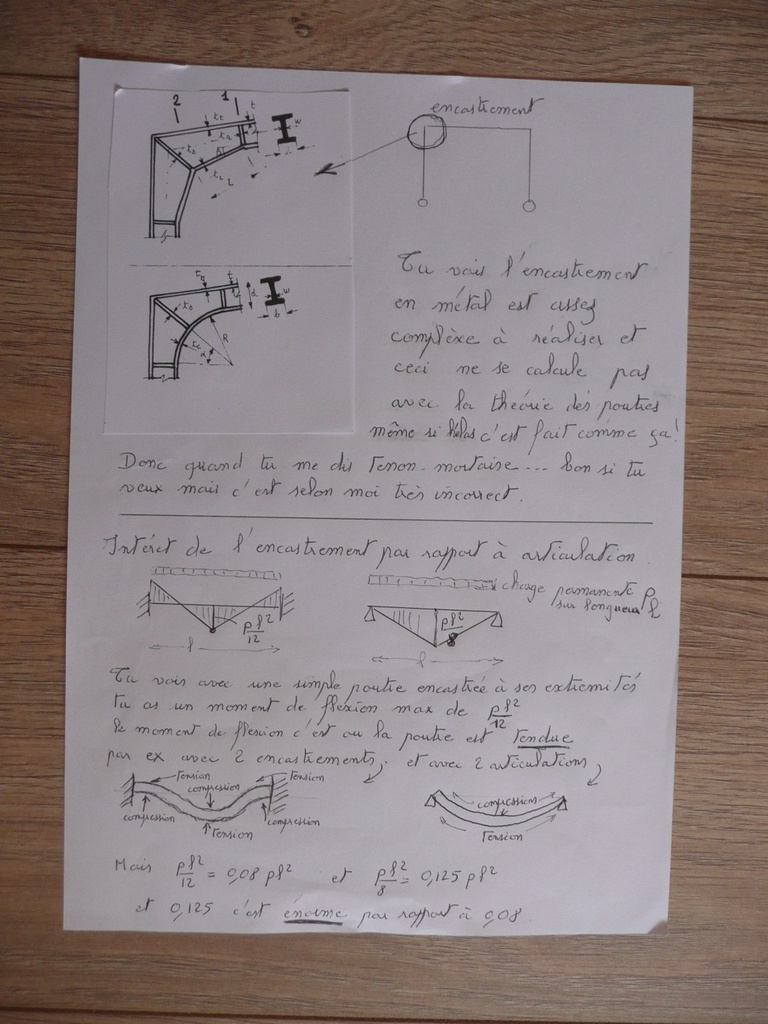 2 1
t₂ t
t₂ w
t₂ ΔT
t₂ L
encastrement
t₂ t
t₀ d w
R b
t₂ α
Tu vois l'encastrement
en métal est assez
complèxe à réaliser et
ceci ne se calcule pas
avec la théorie des poutres
même si hélas c'est fait comme ça!
Donc quand tu me dis Tenon-mortaise... bon si tu
veux mais c'est selon moi très incorrect.
Intérêt de l'encastrement par rapport à articulation
charge permanente p
sur longueur l
pl²/12
pl²/8
l l
Tu vois avec une simple poutre encastrée à ses extremités
tu as un moment de flexion max de pl²/12
le moment de flexion c'est ou la poutre est Tendue
par ex avec 2 encastrements, et avec 2 articulations
Tension compression Tension
compression Tension compression
compression
Tension
Mais pl²/12 = 0,08 pl² et pl²/8 = 0,125 pl²
et 0,125 c'est énorme par rapport à 0,08